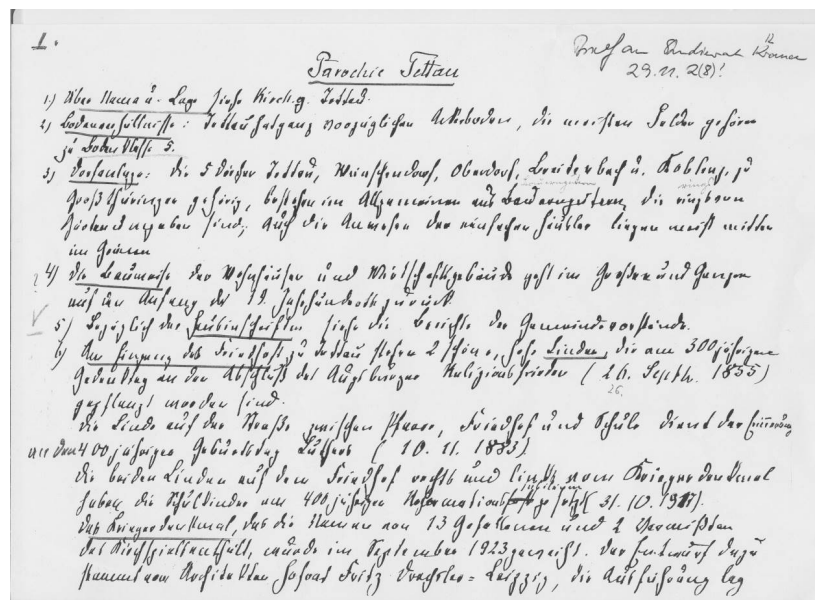 1.
29.11.2(8)!
Parochie Tettau
1.) Über Name u. Lage siehe Kirch.g. Tettau.
2.) Bodenverhältnisse: Tettau hat ganz vorzüglichen Ackerboden, die meisten Felder gehören
zu Boden Klasse 5.
3.) Dorfanlage: die 5 Dörfer Tettau, Wünschendorf, Oberdorf, Breitenbach u. Koblenz, zu
Groß thüringen gehörig, bestehen im Allgemeinen aus Bauerngütern, die rings von
Gärten umgeben sind; auch die Anwesen der einfachen Häusler liegen meist mitten
im Grünen
4) die Bauweise der Wohnhäuser und Wirtschaftsgebäude geht im Großen und Ganzen
auf den Anfang des 19. Jahrhunderts zurück.
5) Bezüglich der Hausinschriften siehe die Berichte der Gemeindevorstände.
6) Am Eingang des Friedhofs zu Tettau stehen 2 schöne, hohe Linden, die am 300jährigen
Gedenktag an den Abschluß des Augsburger Religionsfrieden (26. Septbr. 1855)
26.
gepflanzt worden sind.
Die Linde auf der Straße zwischen Pfarre, Friedhof und Schule dient der Erinnerung
an den 400 jährigen Geburtstag Luthers (10.11.1883)
die beiden Linden auf dem Friedhof rechts und links vom Kriegerdenkmal
haben die Schulkinder am 400 jährigen Reformationsjubiläum gesetzt (31.10.1917).
das Kriegerdenkmal, das die Namen von 13 Gefallenen und 2 Vermißten
des Kirchspiels enthält, wurde im September 1923 geweiht. Der Entwurf dazu
stammt vom Architekten Hofrat Fritz Drechsler=Leipzig, die Ausführung lag